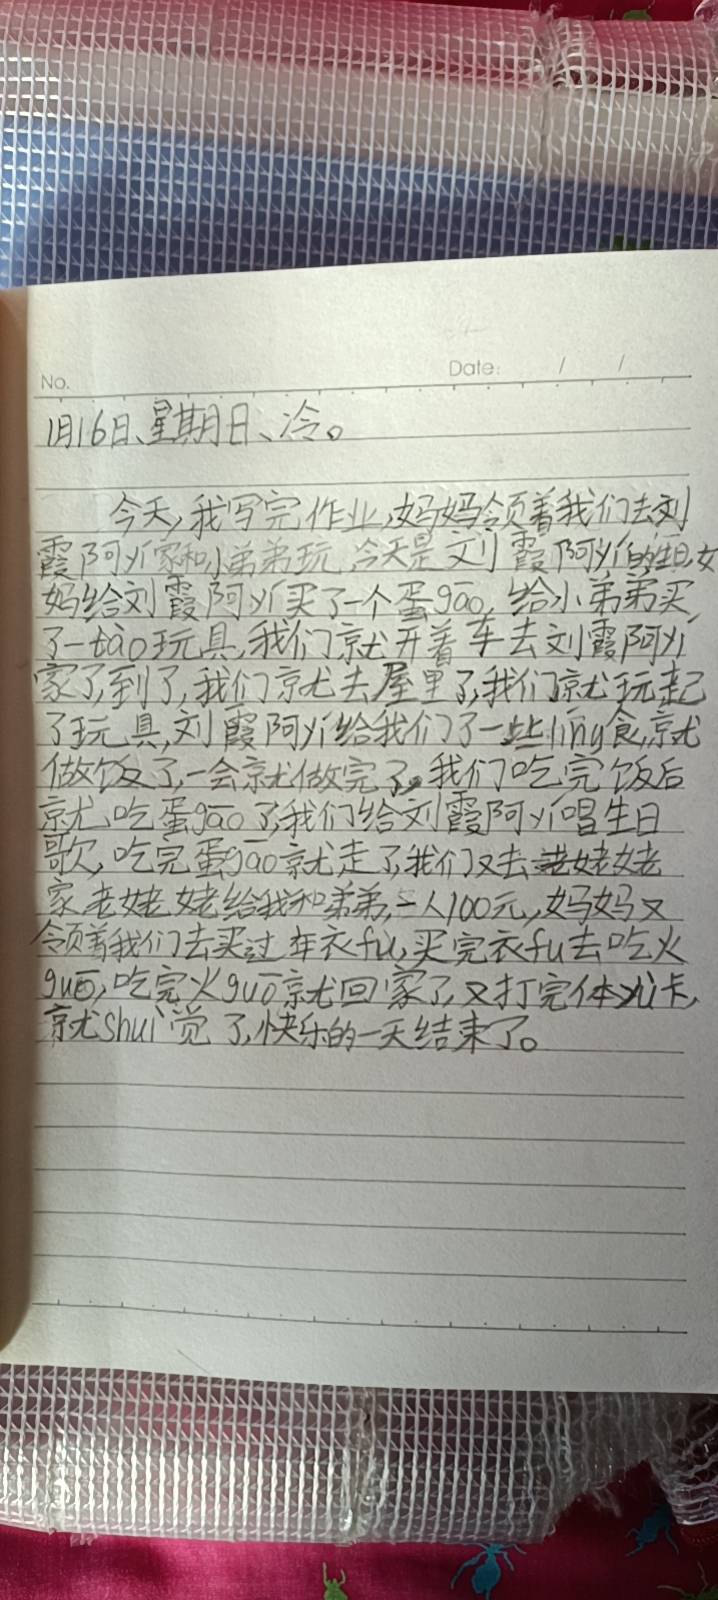 No.
Date: / /
1月16日、星期日、冷。
今天,我写完作业,妈妈领着我们去刘
霞阿yí家和小弟弟玩,今天是刘霞阿yí的生日,妈
妈给刘霞阿yí买了一个蛋gāo,给小弟弟买
了一tào玩具,我们就开着车去刘霞阿yí
家了,到了,我们就去屋里了,我们就玩起
了玩具,刘霞阿yí给我们了一些líng食,就
做饭了,一会就做完了。我们吃完饭后
就吃蛋gāo了,我们给刘霞阿yí唱生日
歌,吃完蛋gāo就走了,我们又去老姥姥
家,老姥姥给我和弟弟,一人100元,妈妈又
领着我们去买过年衣fu,买完衣fu去吃火
guō,吃完火guō就回家了,又打完体yù卡,
就shuì觉了,快乐的一天结束了。